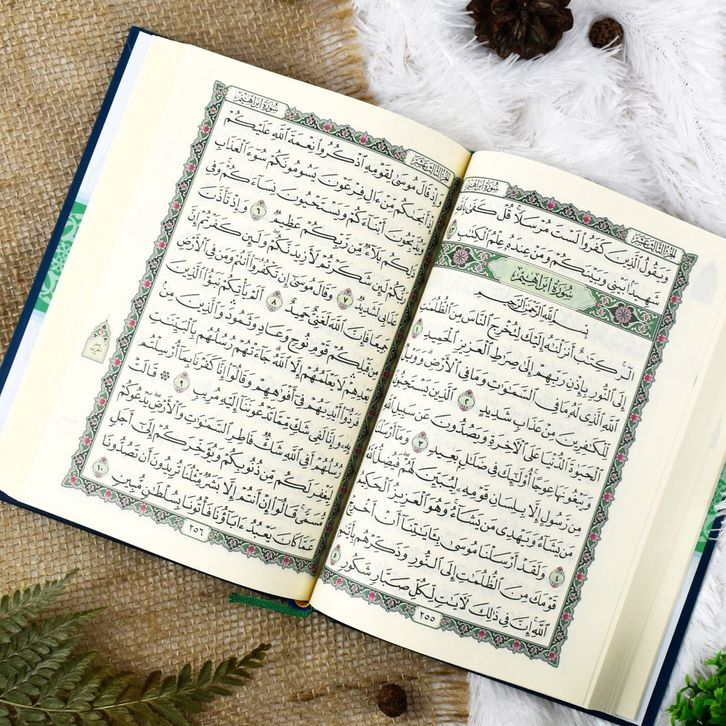 الجزء الثالث عشر
سُورَةُ إِبْرَاهِيمَ
وَيَقُولُ ٱلَّذِينَ كَفَرُوا۟ لَسْتَ مُرْسَلًا قُلْ كَفَىٰ
شَهِيدًۢا بَيْنِى وَبَيْنَكُمْ وَمَنْ عِندَهُۥ عِلْمُ ٱلْكِتَٰبِ
سُورَةُ إِبْرَاهِيمَ
بِسْمِ ٱللَّهِ ٱلرَّحْمَٰنِ ٱلرَّحِيمِ
الٓر كِتَٰبٌ أَنزَلْنَٰهُ إِلَيْكَ لِتُخْرِجَ ٱلنَّاسَ مِنَ ٱلظُّلُمَٰتِ
إِلَى ٱلنُّورِ بِإِذْنِ رَبِّهِمْ إِلَىٰ صِرَٰطِ ٱلْعَزِيزِ ٱلْحَمِيدِ ١
ٱللَّهِ ٱلَّذِى لَهُۥ مَا فِى ٱلسَّمَٰوَٰتِ وَمَا فِى ٱلْأَرْضِ وَوَيْلٌ
لِّلْكَٰفِرِينَ مِنْ عَذَابٍ شَدِيدٍ ٢ ٱلَّذِينَ يَسْتَحِبُّونَ
ٱلْحَيَوٰةَ ٱلدُّنْيَا عَلَى ٱلْءَاخِرَةِ وَيَصُدُّونَ عَن سَبِيلِ ٱللَّهِ
وَيَبْغُونَهَا عِوَجًا أُو۟لَٰٓئِكَ فِى ضَلَٰلٍۭ بَعِيدٍ ٣ وَمَآ أَرْسَلْنَا
مِن رَّسُولٍ إِلَّا بِلِسَانِ قَوْمِهِۦ لِيُبَيِّنَ لَهُمْ فَيُضِلُّ ٱللَّهُ
مَن يَشَآءُ وَيَهْدِى مَن يَشَآءُ وَهُوَ ٱلْعَزِيزُ ٱلْحَكِيمُ ٤
وَلَقَدْ أَرْسَلْنَا مُوسَىٰ بِـَٔايَٰتِنَآ أَنْ أَخْرِجْ
قَوْمَكَ مِنَ ٱلظُّلُمَٰتِ إِلَى ٱلنُّورِ وَذَكِّرْهُم
ٱللَّهِ إِنَّ فِى ذَٰلِكَ لَءَايَٰتٍ لِّكُلِّ صَبَّارٍ شَكُورٍ
٢٥٥
الجزء الثالث عشر
سُورَةُ إِبْرَاهِيمَ
وَإِذْ قَالَ مُوسَىٰ لِقَوْمِهِ ٱذْكُرُوا۟ نِعْمَةَ ٱللَّهِ عَلَيْكُمْ
إِذْ أَنجَىٰكُم مِّنْ ءَالِ فِرْعَوْنَ يَسُومُونَكُمْ سُوٓءَ ٱلْعَذَابِ
وَيُذَبِّحُونَ أَبْنَآءَكُمْ وَيَسْتَحْيُونَ نِسَآءَكُمْ وَفِى
ذَٰلِكُم بَلَآءٌ مِّن رَّبِّكُمْ عَظِيمٌ ٦ وَإِذْ تَأَذَّنَ
رَبُّكُمْ لَئِن شَكَرْتُمْ لَأَزِيدَنَّكُمْ وَلَئِن كَفَرْتُمْ إِنَّ
عَذَابِى لَشَدِيدٌ ٧ وَقَالَ مُوسَىٰٓ إِن تَكْفُرُوٓا۟ أَنتُمْ وَمَن فِى ٱلْأَرْضِ
جَمِيعًا فَإِنَّ ٱللَّهَ لَغَنِىٌّ حَمِيدٌ ٨ أَلَمْ يَأْتِكُمْ نَبَؤُا۟ ٱلَّذِينَ
مِن قَبْلِكُمْ قَوْمِ نُوحٍ وَعَادٍ وَثَمُودَ وَٱلَّذِينَ مِنۢ
بَعْدِهِمْ لَا يَعْلَمُهُمْ إِلَّا ٱللَّهُ جَآءَتْهُمْ رُسُلُهُم بِٱلْبَيِّنَٰتِ
فَرَدُّوٓا۟ أَيْدِيَهُمْ فِىٓ أَفْوَٰهِهِمْ وَقَالُوٓا۟ إِنَّا كَفَرْنَا بِمَآ أُرْسِلْتُم
بِهِۦ وَإِنَّا لَفِى شَكٍّ مِّمَّا تَدْعُونَنَآ إِلَيْهِ مُرِيبٍ ٩ قَالَتْ
رُسُلُهُمْ أَفِى ٱللَّهِ شَكٌّ فَاطِرِ ٱلسَّمَٰوَٰتِ وَٱلْأَرْضِ يَدْعُوكُمْ
لِيَغْفِرَ لَكُم مِّن ذُنُوبِكُمْ وَيُؤَخِّرَكُمْ إِلَىٰٓ أَجَلٍ
مُّسَمًّى قَالُوٓا۟ إِنْ أَنتُمْ إِلَّا بَشَرٌ مِّثْلُنَا تُرِيدُونَ أَن تَصُدُّونَا
عَمَّا كَانَ يَعْبُدُ ءَابَآؤُنَا فَأْتُونَا بِسُلْطَٰنٍ مُّبِينٍ ١٠
٢٥٦